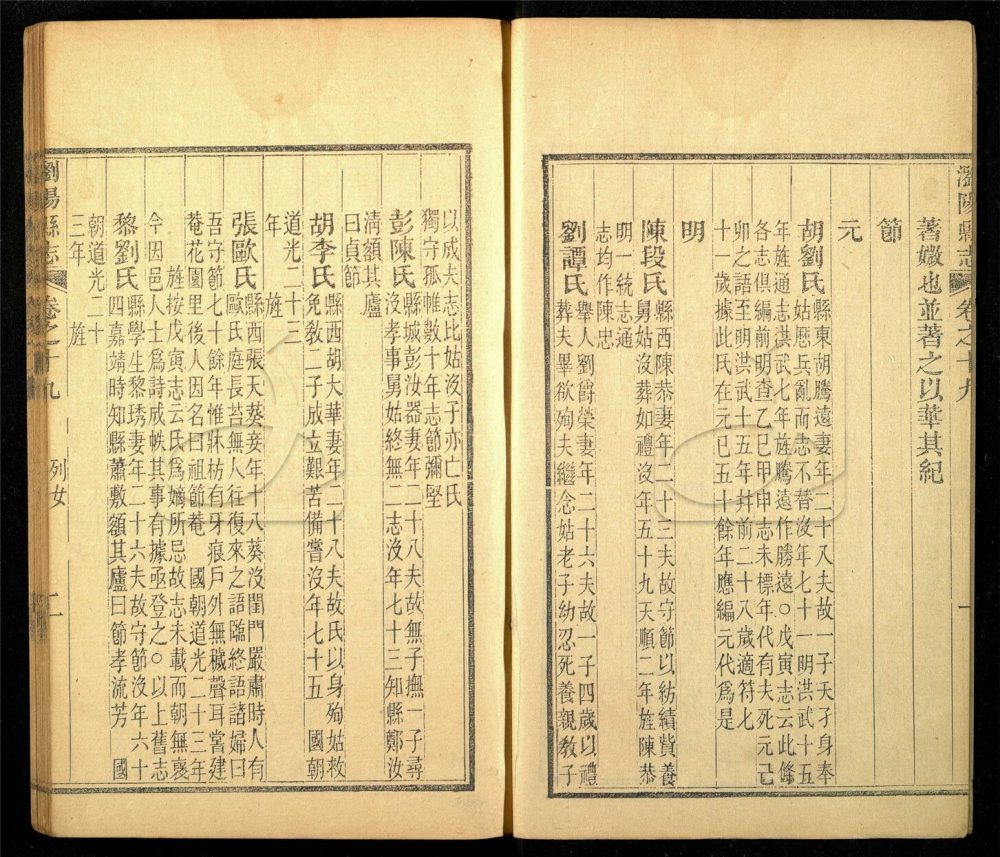 瀏陽縣志 卷之十九 一
著媺也並著之以華其紀
節
元
胡劉氏縣東胡騰遠妻年二十八夫故一子天孑身奉
姑厯兵亂而志不替沒年七十一明洪武十五
年旌通志洪武七年旌騰遠作勝遠○戊寅志云此條
各志俱編前明查乙巳甲申志未標年代有夫死元己
卯之語至明洪武十五年幷前二十八歲適符七
十一歲據此氏在元已五十餘年應編元代爲是
明
陳段氏縣西陳恭妻年二十三夫故守節以紡績貲養
舅姑沒葬如禮沒年五十九天順二年旌陳恭
明一統志通
志均作陳忠
劉譚氏舉人劉爵榮妻年二十六夫故一子四歲以禮
葬夫畢欲殉夫繼念姑老子幼忍死養親敎子
以成夫志比姑沒子亦亡氏
獨守孤帷數十年志節彌堅
彭陳氏縣城彭汝器妻年二十八夫故無子撫一子尋
沒孝事舅姑終無二志沒年七十三知縣鄭汝
淸額其廬
曰貞節
胡李氏縣西胡大華妻年二十八夫故氏以身殉姑救
免敎二子成立艱苦備嘗沒年七十五 國朝
道光二十三
年 旌
張歐氏縣西張天葵妾年十八葵沒閨門嚴肅時人有
歐氏庭長苔無人往復來之語臨終語諸婦曰
吾守節七十餘年惟牀枋有牙痕戶外無穢聲耳嘗建
菴花園里後人因名曰祖節菴 國朝道光二十三年
旌按戊寅志云氏爲嫡所忌故志未載而朝無襃
今因邑人士爲詩成帙其事有據亟登之○以上舊志
黎劉氏縣學生黎琇妻年二十六夫故守節沒年六十
四嘉靖時知縣蕭敷額其廬曰節孝流芳 國
朝道光二十
三年 旌
瀏陽縣志 卷之十九 列女 二